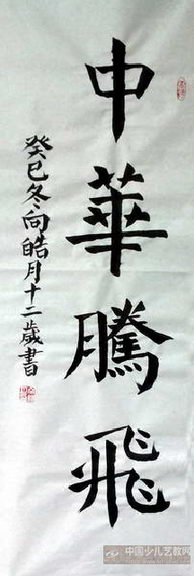 中華騰飛
癸巳冬向皓月十二歲書
中国少儿艺教网